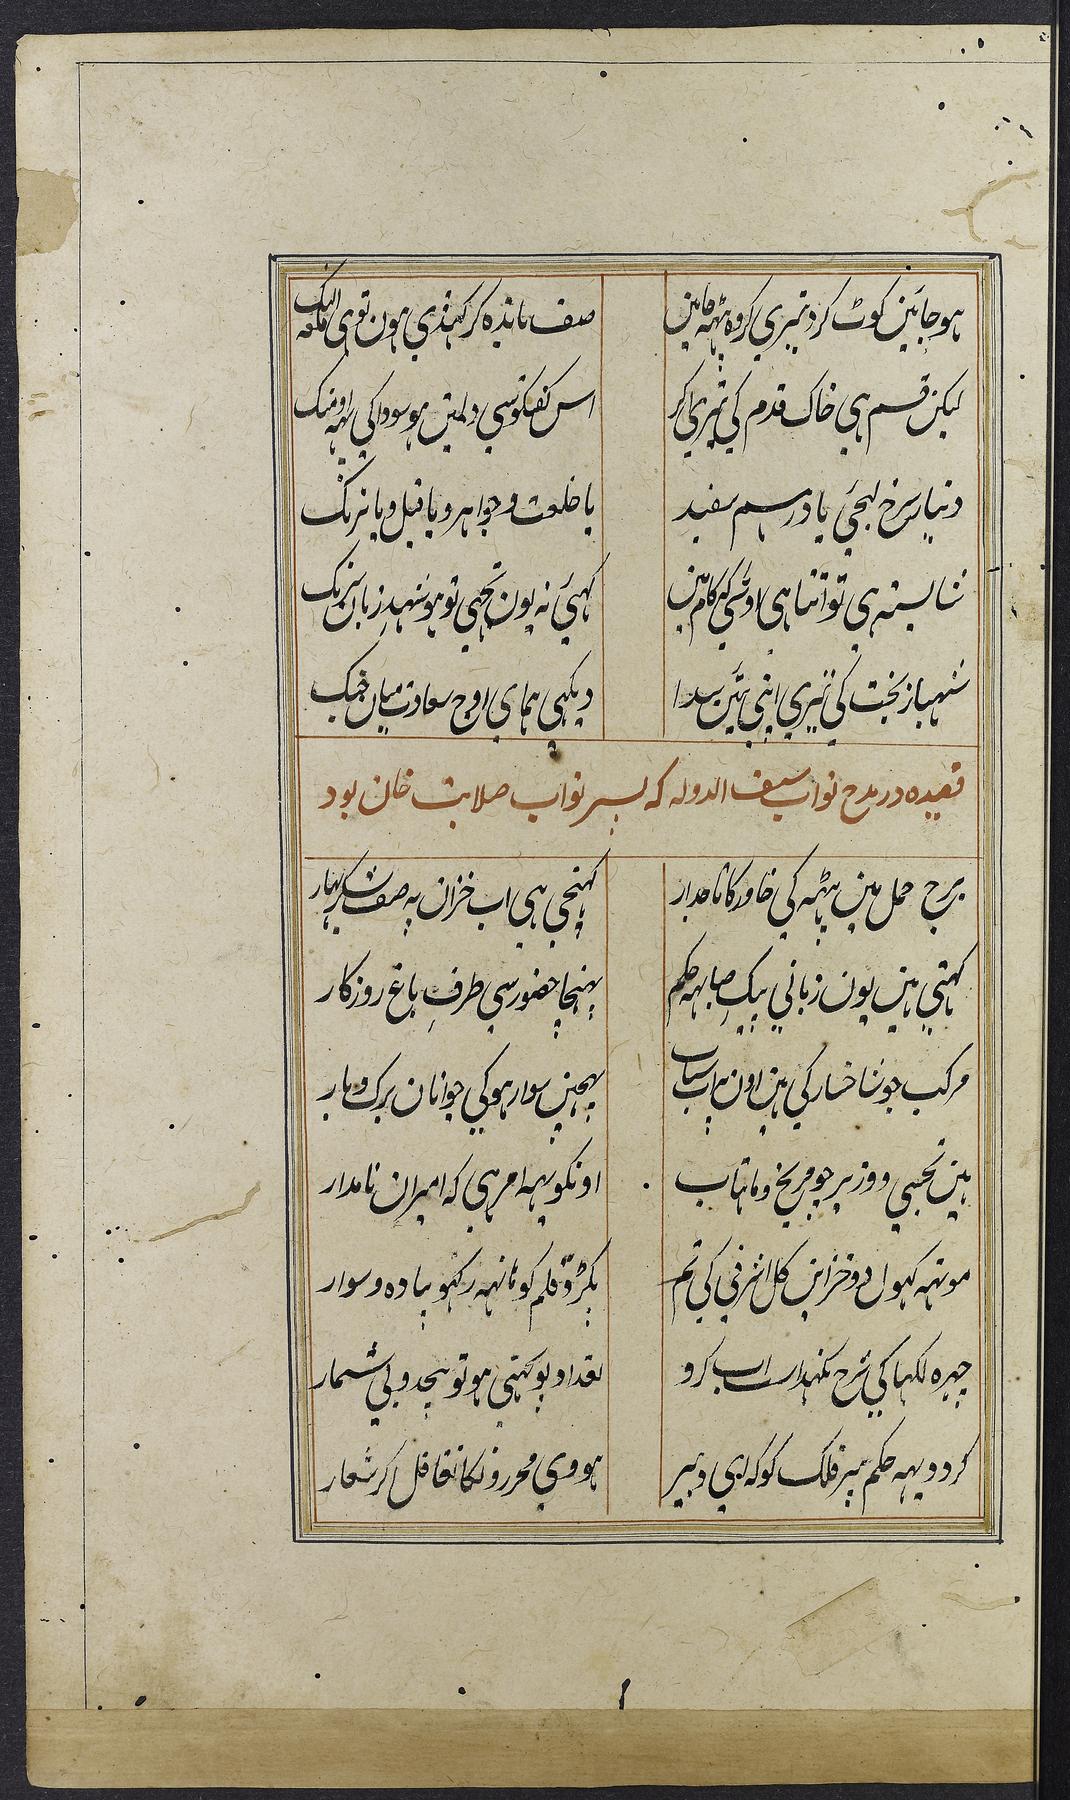 ہو جائین کوٹ کرد تیری کروہ بیٹہہ جاہین صف باندہ کر کہڑی ہون توہی قلعہ النک
لیکن قسم ہی خاک قدم کی تیری اگر اس کفتکو سی دلمین ہو سودا کی یہہ اومنک
دنیار سرخ لیجئی یا درہم سفید یا خلعت و جواہر و یا فیل و یا ترنک
شایستہ ہی تو اتنا ہی اوسکی کہ کام مین کہیئی نہ یون تجہی تو ہو شہد زبان شرنک
شہباز بخت کی تیری اپنی تئین سدا دیکہی ہمای اوج سعادت میان چنک
قصیدہ در مدح نواب سیف الدولہ کہ پسر نواب صلابت خان بود
برج حمل مین بیٹہہ کی خاور کا تاجدار کہنچی ہی اب خزان پہ صف لشکر بہار
کہتی ہین یون زبانی پیک صبا یہہ حکم پہنچا حضور سی طرف باغ روزکار
مرکب جو شاخسار کی ہین اون پہ اب شتاب بہیجین سوار ہو کی جوانان برک و بار
ہین تخشی و وزیر جو مریخ و ماہتاب اونکو یہہ امر ہی کہ امیران نامدار
مونہہ کہول دو خزاین کل اشرفی کی تم پکڑو قلم کو ہاتہہ رکہو پیادہ و سوار
چہرہ لکہا کی شرح نکہداشت اب کرو تعداد پوچہتی ہو تو بیحد و بی شمار
کردو یہہ حکم پیر فلک کو کہ ای دبیر ہووی محررونکا تغافل اکر شعار